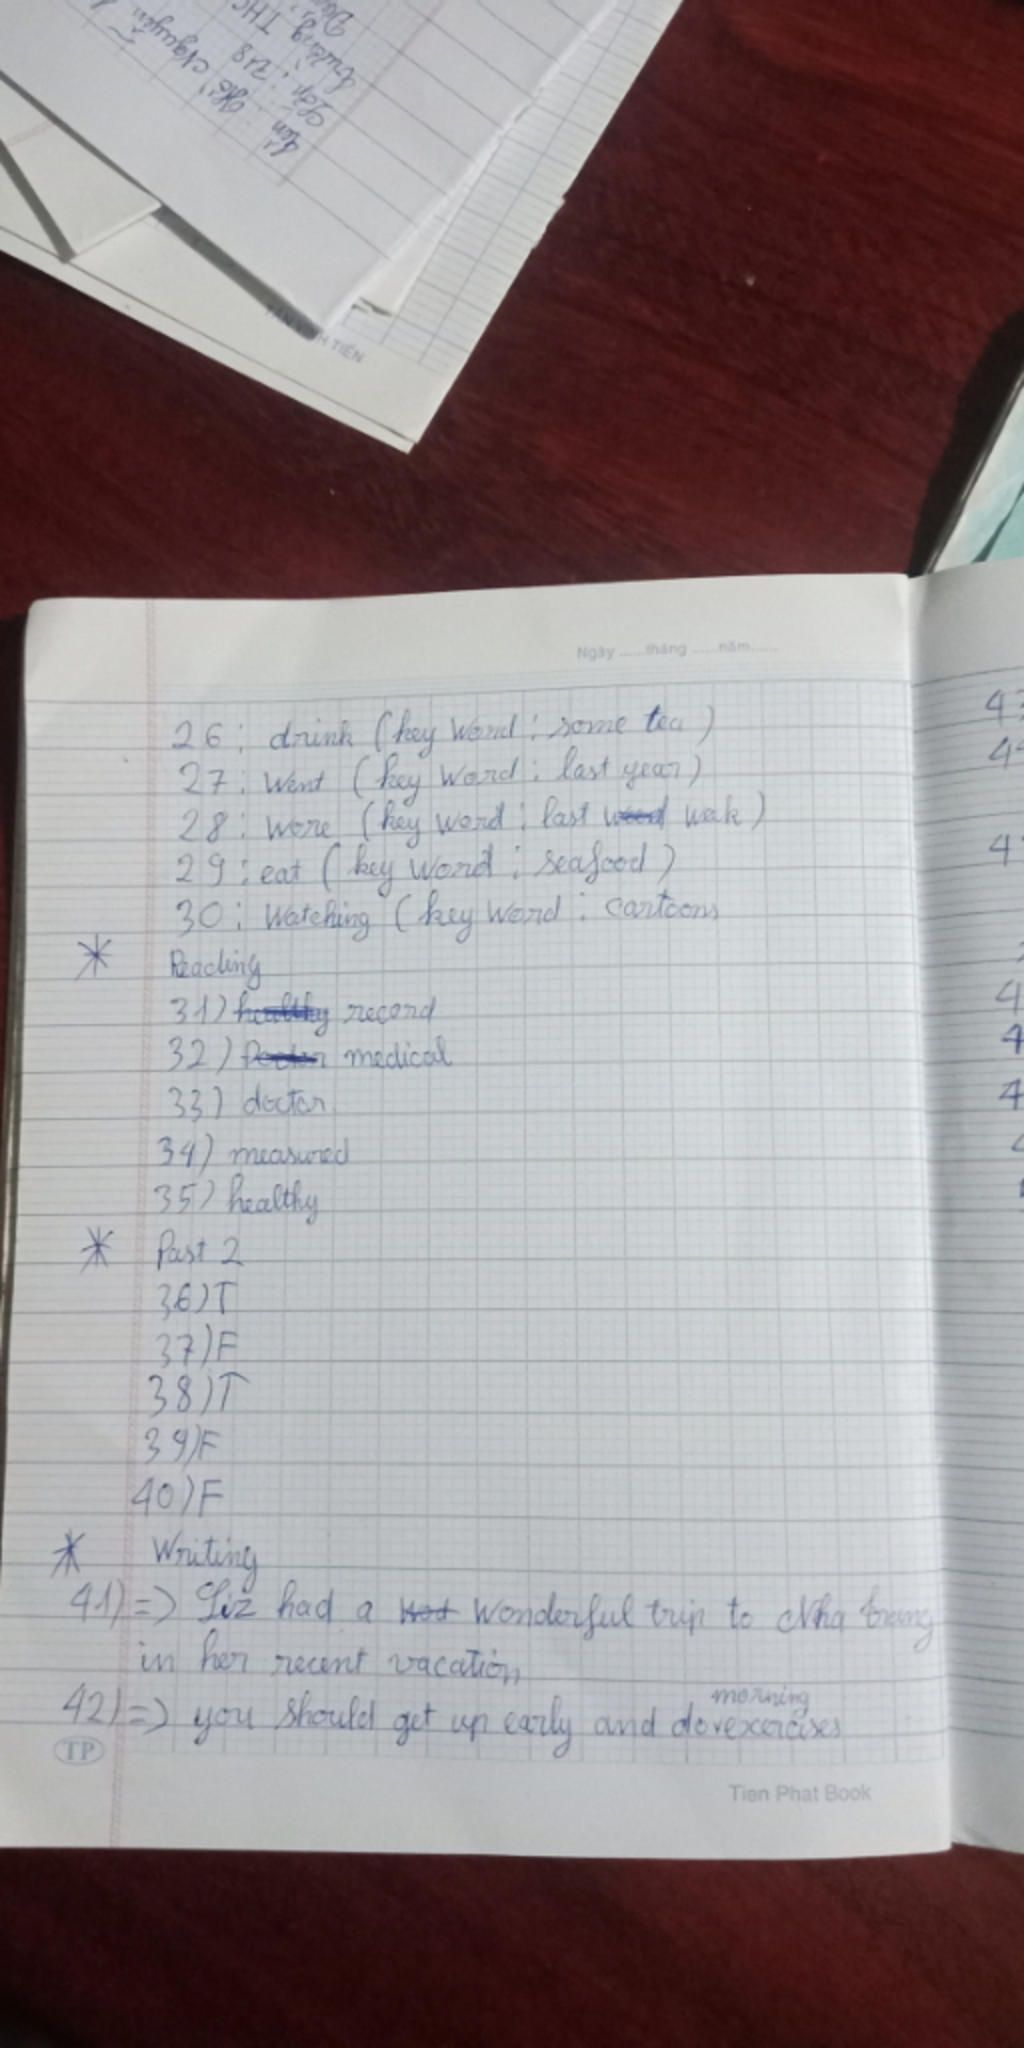 Trường THC
Lớp : 7/8
Nguyễn
TIẾN
Ngày ......tháng ......năm......
26 : drink (key word : some tea )
27 : went (key word : last year)
28 : wore (key word : last weed weak )
29 : eat (key word : seafood)
30 : Watching (key word : cartoons
* Reading
31) healthy record
32) Doctor medical
33) doctor
34) measured
35) healthy
* Part 2
36) T
37) F
38) T
39) F
40) F
* Writing
41) => Liz had a wonderful trip to Nha trang
in her recent vacation
42) => you should get up early and do morning exercises
TP
Tien Phat Book